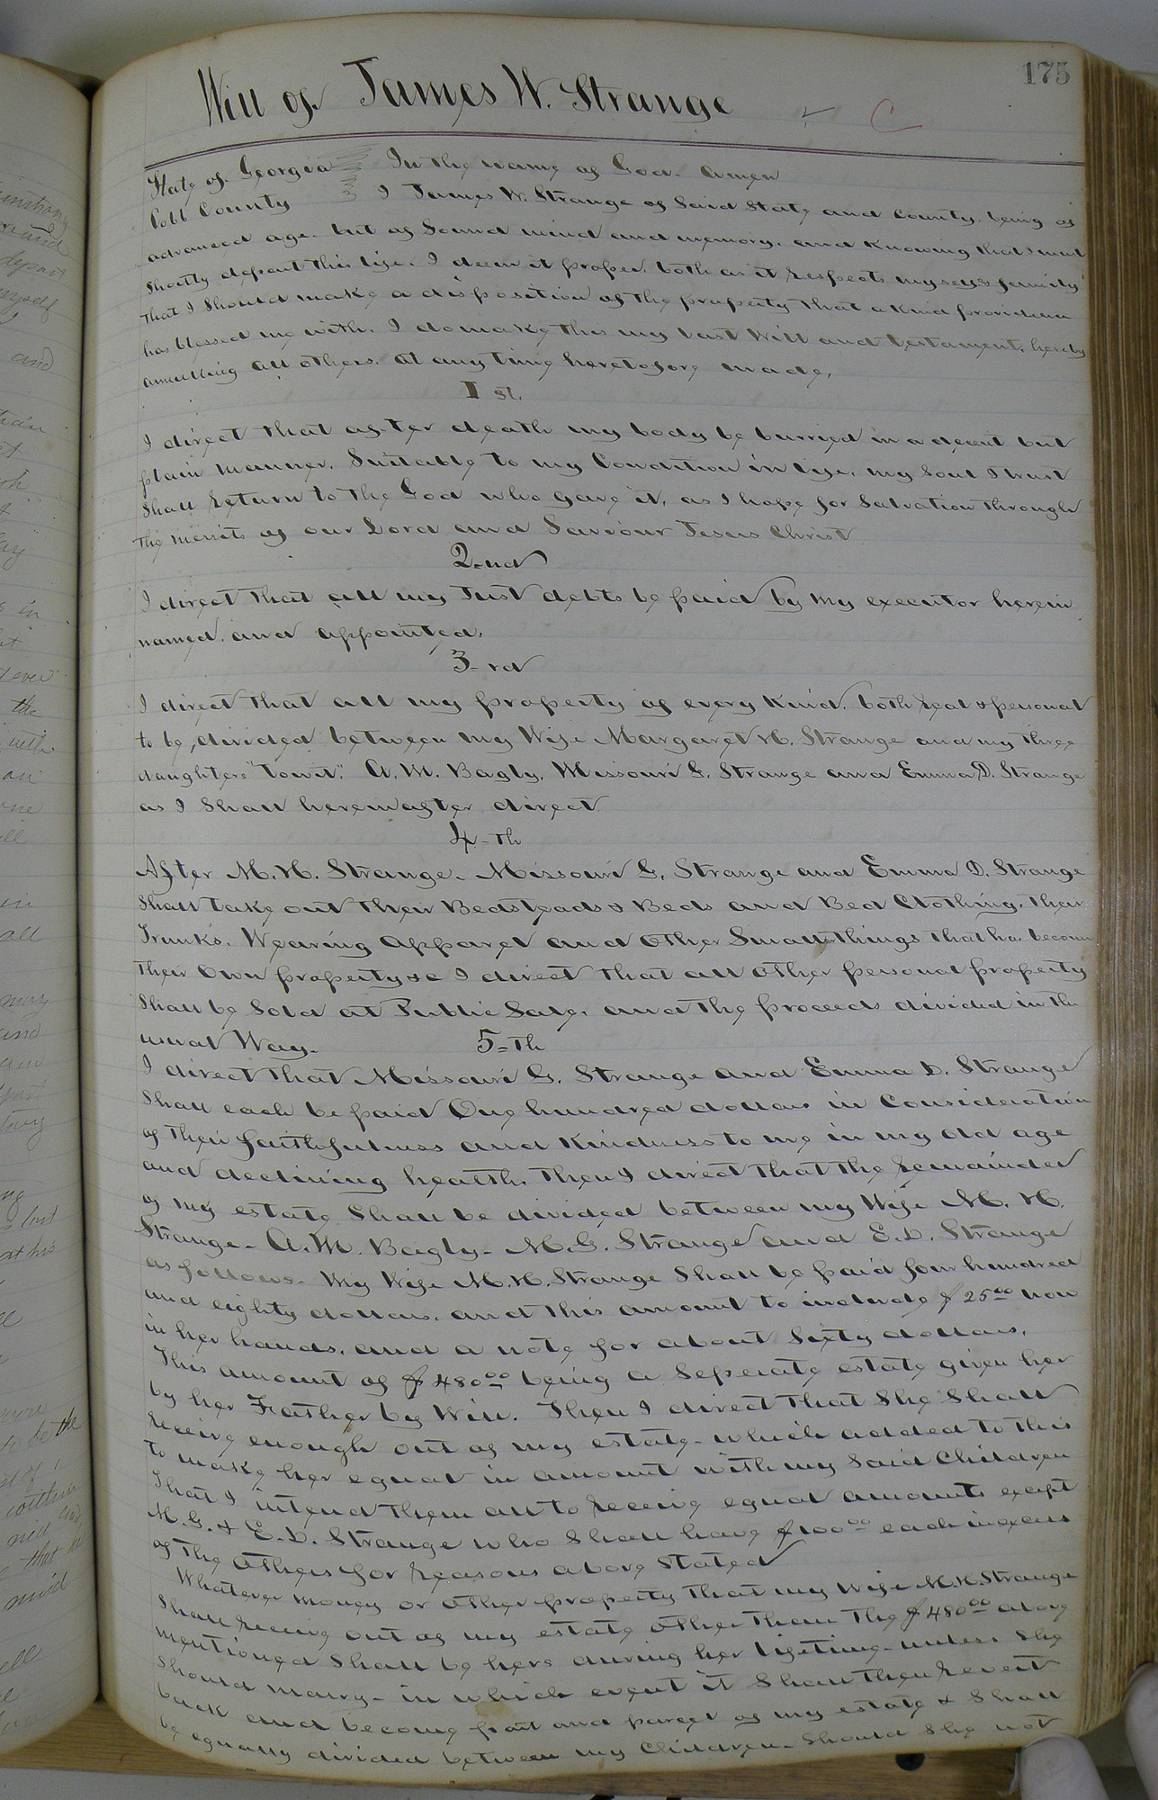 175
Will of James W. Strange
C
State of Georgia In the name of God. Amen
Cobb County I James W. Strange of Said State and County, being of
advanced age. but of Sound mind and memory. and Knowing that I must
Shortly depart this life. I deem it proper, both as it respects myself & family
that I Should make a disposition of the property that a Kind providence
has blessed me with. I do make this my last Will and testament, hereby
annulling all others. at any time heretofore made,
1st.
I direct that after death my body be burried in a decent but
plain manner. Suitable to my Condition in life. my Soul I trust
Shall return to the God who gave it, as I hope for Salvation through
the merits of our Lord and Saviour Jesus Christ
2nd
I direct that all my Just debts be paid by my executor herein
named. and appointed.
3-rd
I direct that all my property of every Kind. both real & personal
to be, divided between my Wife Margaret H. Strange and my three
daughters "towit". A. M. Bagly, Missouri G. Strange and Emma D. Strange
as I Shall hereinafter direct
4-th
After M. H. Strange. Missouri G. Strange and Emma D. Strange
Shall take out their Bedsteads & Beds and Bed Clothing. Their
Trunks. Wearing apparel and other Small things that has become
their own property &c I direct that all other personal property
Shall be Sold at Public Sale, and the proceeds divided in the
usual Way.
5-th
I direct that Missouri G. Strange and Emma D. Strange
Shall each be paid One hundred dollars in Consideration
of their faithfulness and Kindness to me in my old age
and declining health. Then I direct that the remainder
of my estate Shall be divided between my Wife M. H.
Strange - A. M. Bagly - M. G. Strange and E. D. Strange
as follows. My Wife M. H. Strange Shall be paid four hundred
and eighty dollars. and this amount to include $25.00 now
in her hands. and a note for about Sixty dollars.
This amount of $480.00 being a Seperate estate given her
by her Father by Will. Then I direct that She Shall
receive enough out of my estate - which added to this
to make her equal in amount with my Said Children
That I intend them all to receive equal amounts except
M. G. & E. D. Strange who Shall have $100.00 each in excess
of the others for reasons above Stated
Whatever money or other property that my Wife M. H. Strange
Shall receive out of my estate other than the $480.00 above
mentioned Shall be hers during her lifetime - unless She
Should marry - in which event it Shall then revert
back and become part and parcel of my estate & Shall
be equally divided between my Children. Should She not